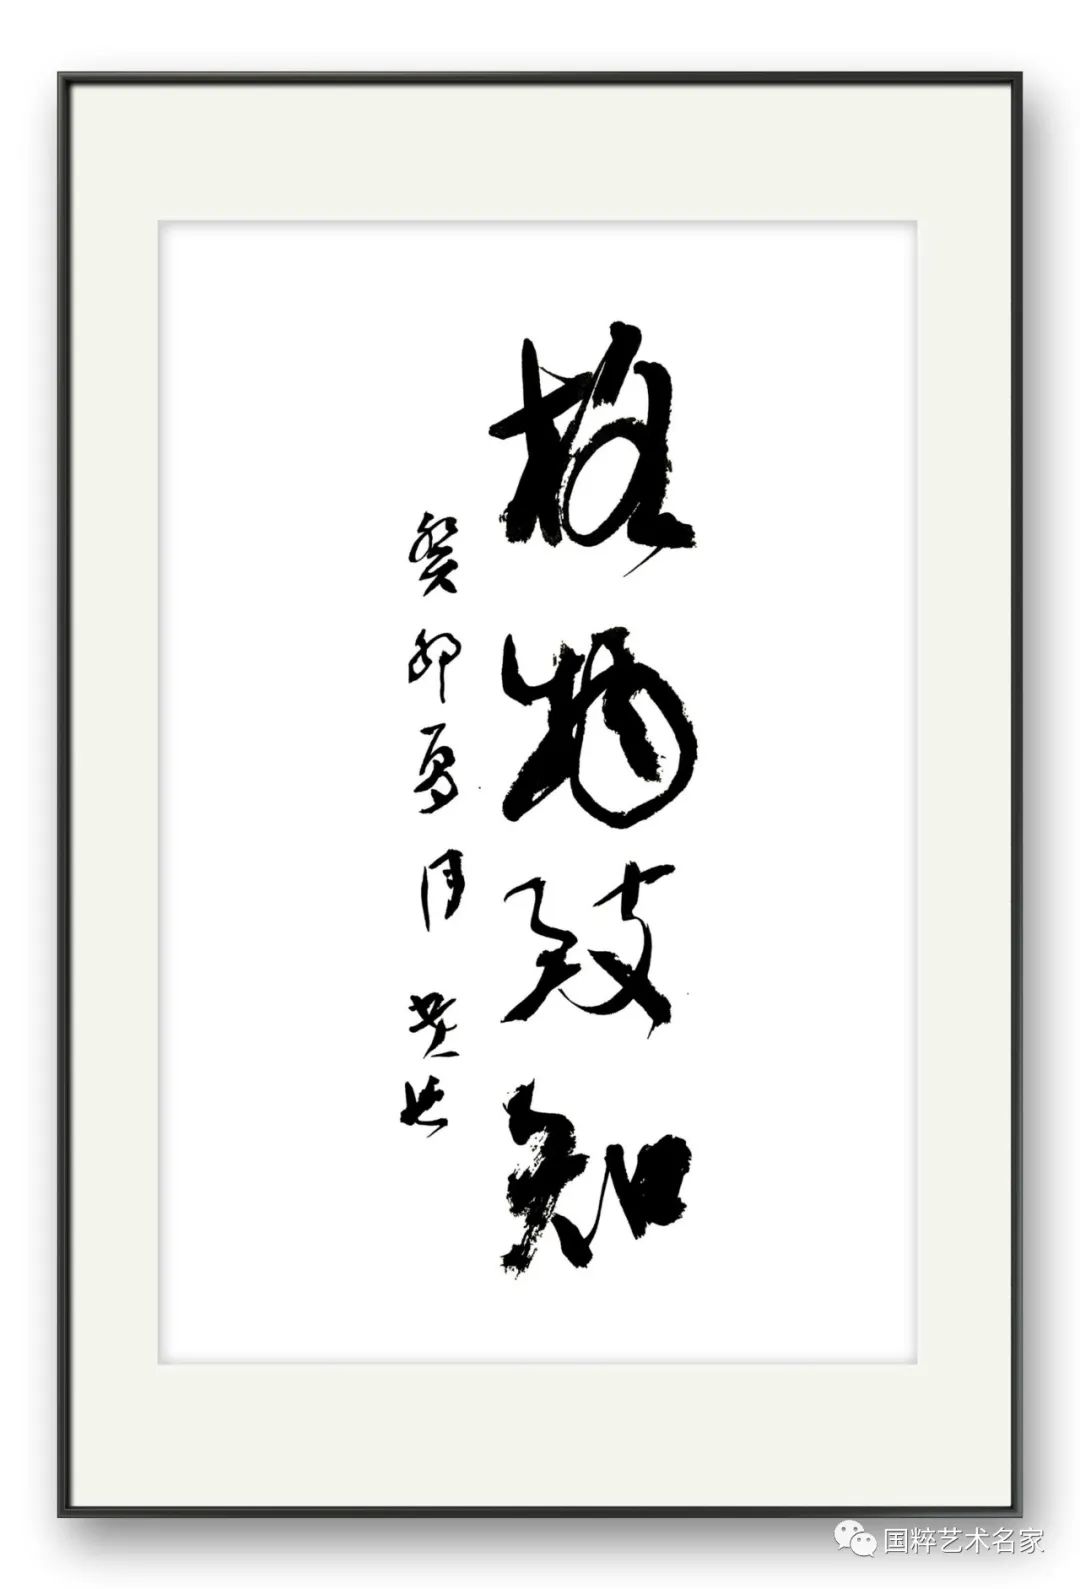 格物致知
癸卯夏月 世
国粹艺术名家